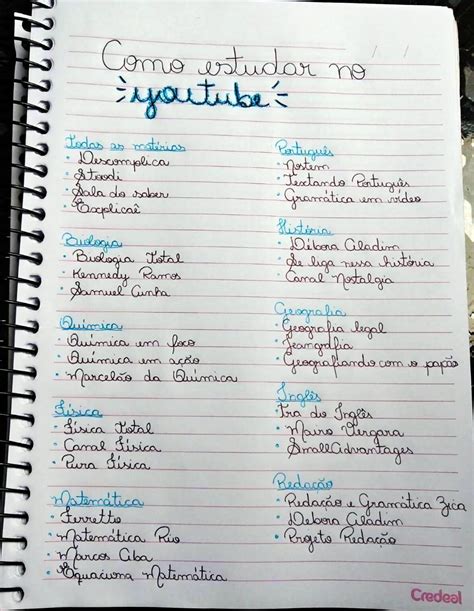 Como estudar no
youtube
Todas as matérias
• Descomplica
• Stoodi
• Sala do saber
• Explicaê
Biologia
• Biologia Total
• Kennedy Ramos
• Samuel Cunha
Química
• Química em foco
• Química em ação
• Marcelão da Química
Física
• Física Total
• Canal Física
• Pura Física
Matemática
• Ferretto
• Matemática Rio
• Marcos Aba
• Equaciona Matemática
Português
• Noslem
• Textando Português
• Gramática em vídeo
História
• Débora Aladim
• Se liga nessa história
• Canal Nostalgia
Geografia
• Geografia legal
• Jeangrafia
• Geografiando com o papão
Inglês
• Tra do Inglês
• Mairo Vergara
• SmallAdvantages
Redação
• Redação e Gramática Zica
• Débora Aladim
• Projeto Redação
Credeal